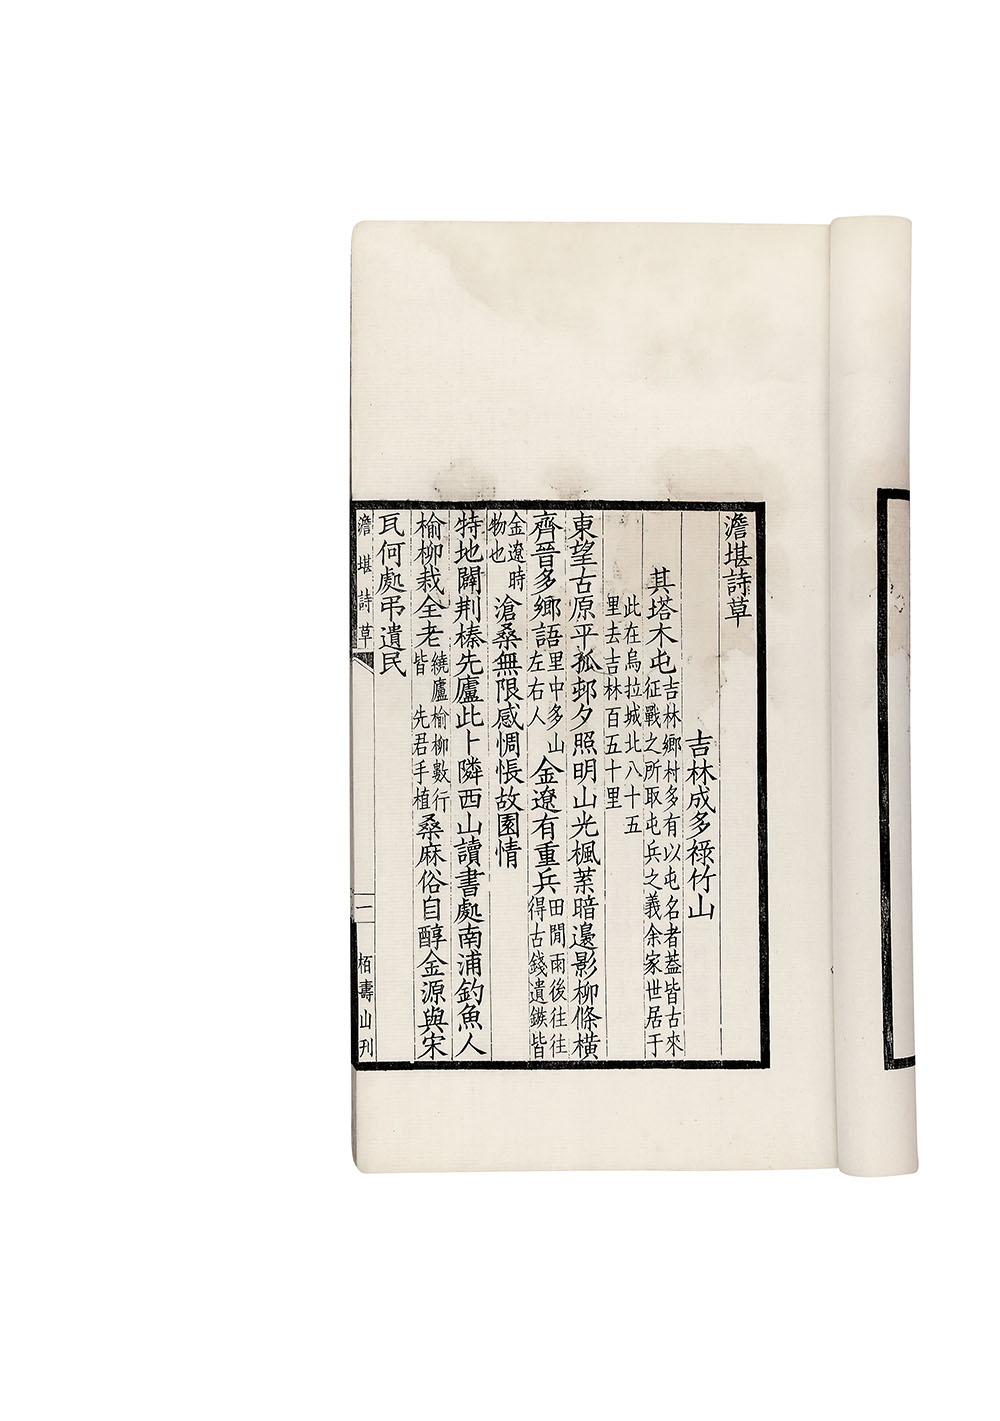 澹堪詩草
吉林成多祿竹山
其塔木屯吉林鄉村多有以屯名者葢皆古來征戰之所取屯兵之義余家世居于
此在烏拉城北八十五里去吉林百五十里
東望古原平孤邨夕照明山光楓葉暗邊影柳條橫
齊晉多鄉語里中多山左右人金遼有重兵田閒雨後往往得古錢遺鏃皆
金遼時物也滄桑無限感惆悵故園情
特地闢荆榛先廬此卜隣西山讀書處南浦釣魚人
榆柳栽全老繞廬榆柳數行皆先君手植桑麻俗自醇金源與宋
瓦何處弔遺民
澹堪詩草
一
栢壽山刊